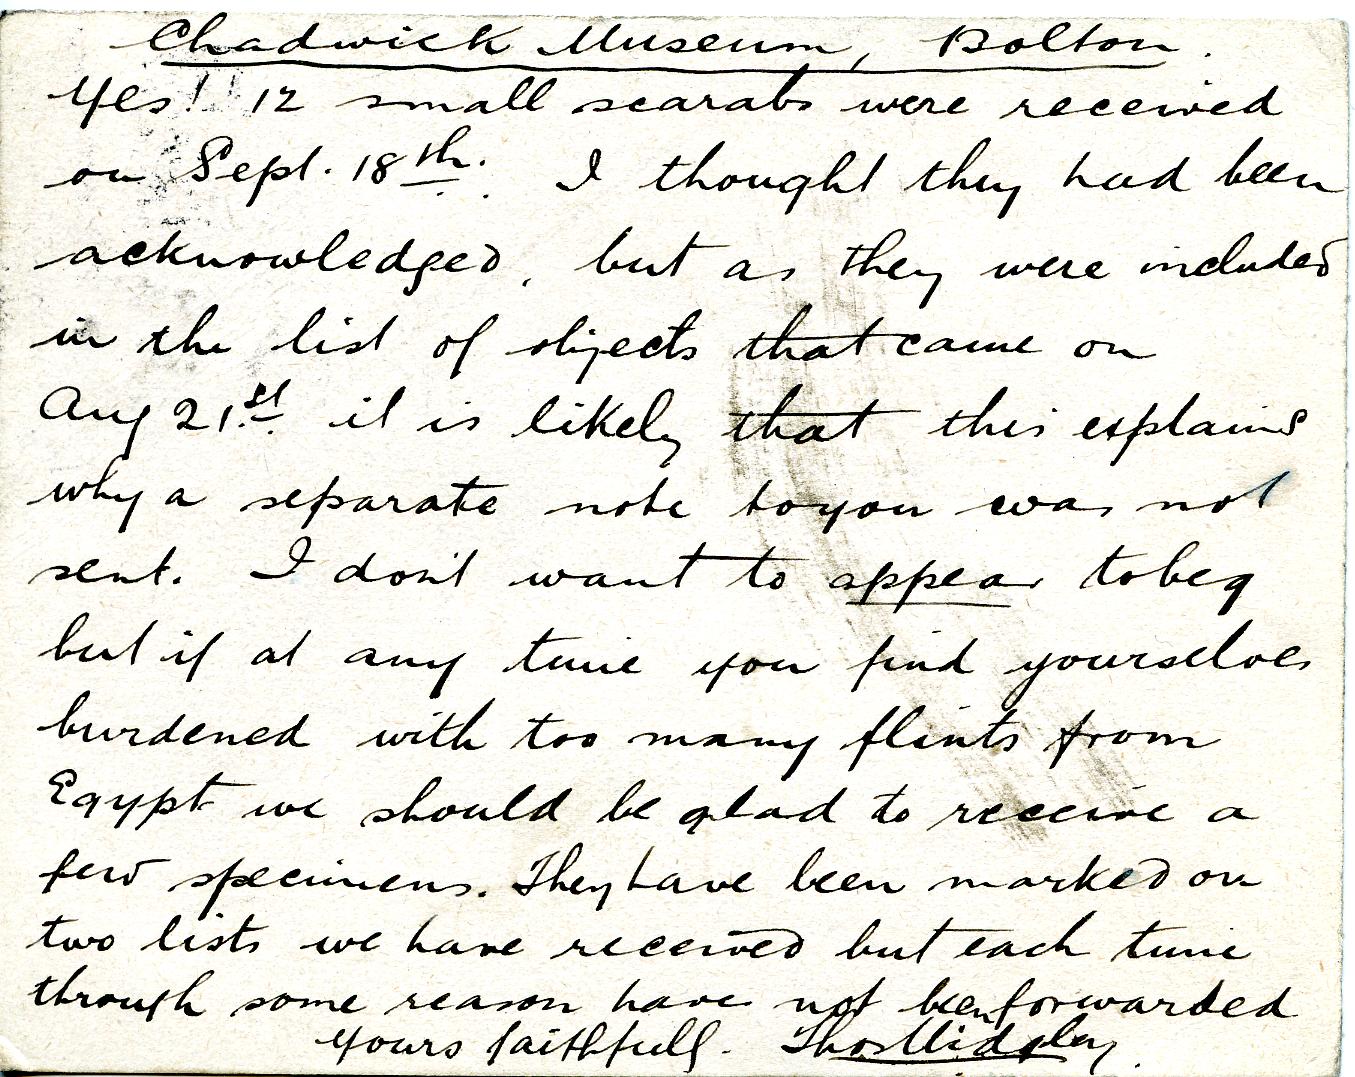 Chadwick Museum, Bolton.
Yes! 12 small scarabs were received
on Sept. 18th. I thought they had been
acknowledged, but as they were included
in the list of objects that came on
Aug 21st. it is likely that this explains
why a separate note to you was not
sent. I don't want to appear to beg
but if at any time you find yourselves
burdened with too many flints from
Egypt we should be glad to receive a
few specimens. They have been marked on
two lists we have received but each time
through some reason have not been forwarded
Yours faithfull. Thos Midgley.